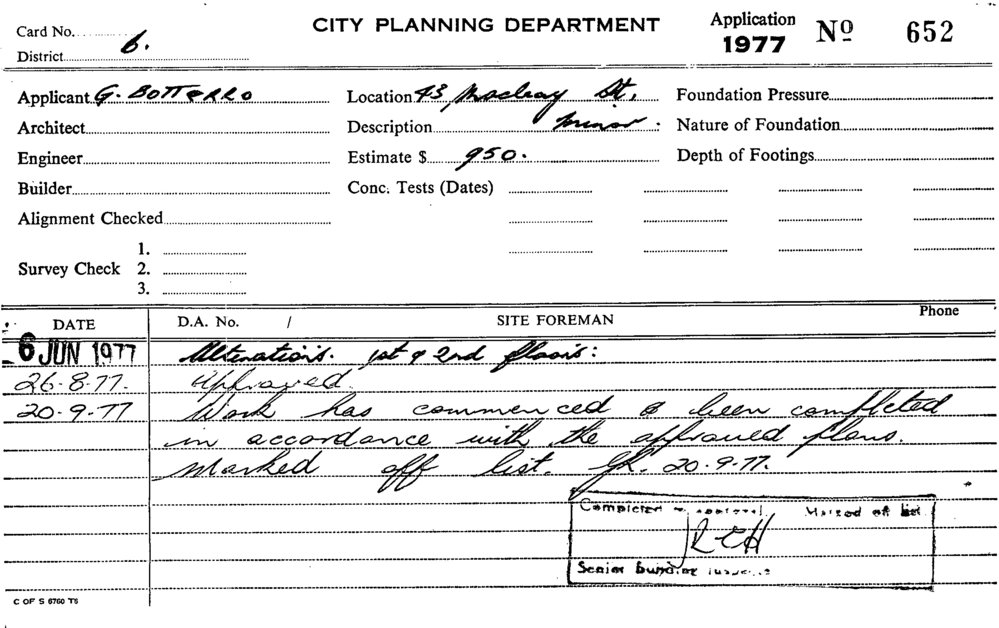 CITY PLANNING DEPARTMENT
Application 1977 Nº 652
Card No.
District 6.
Applicant G. BOTTERRO Location 43 Macleay St. Foundation Pressure
Architect Description minor. Nature of Foundation
Engineer Estimate $ 950. Depth of Footings
Builder Conc. Tests (Dates)
Alignment Checked
Survey Check 1. 2. 3.
DATE D.A. No. / SITE FOREMAN Phone
6 JUN 1977 Alterations. 1st & 2nd floors:
26-8-77. Approved.
20-9-77 Work has commenced & been completed
in accordance with the approved plans.
Marked off list. 20-9-77.
Completed approval. Marked off list
RCH
Senior Building
C OF S 6760 T6